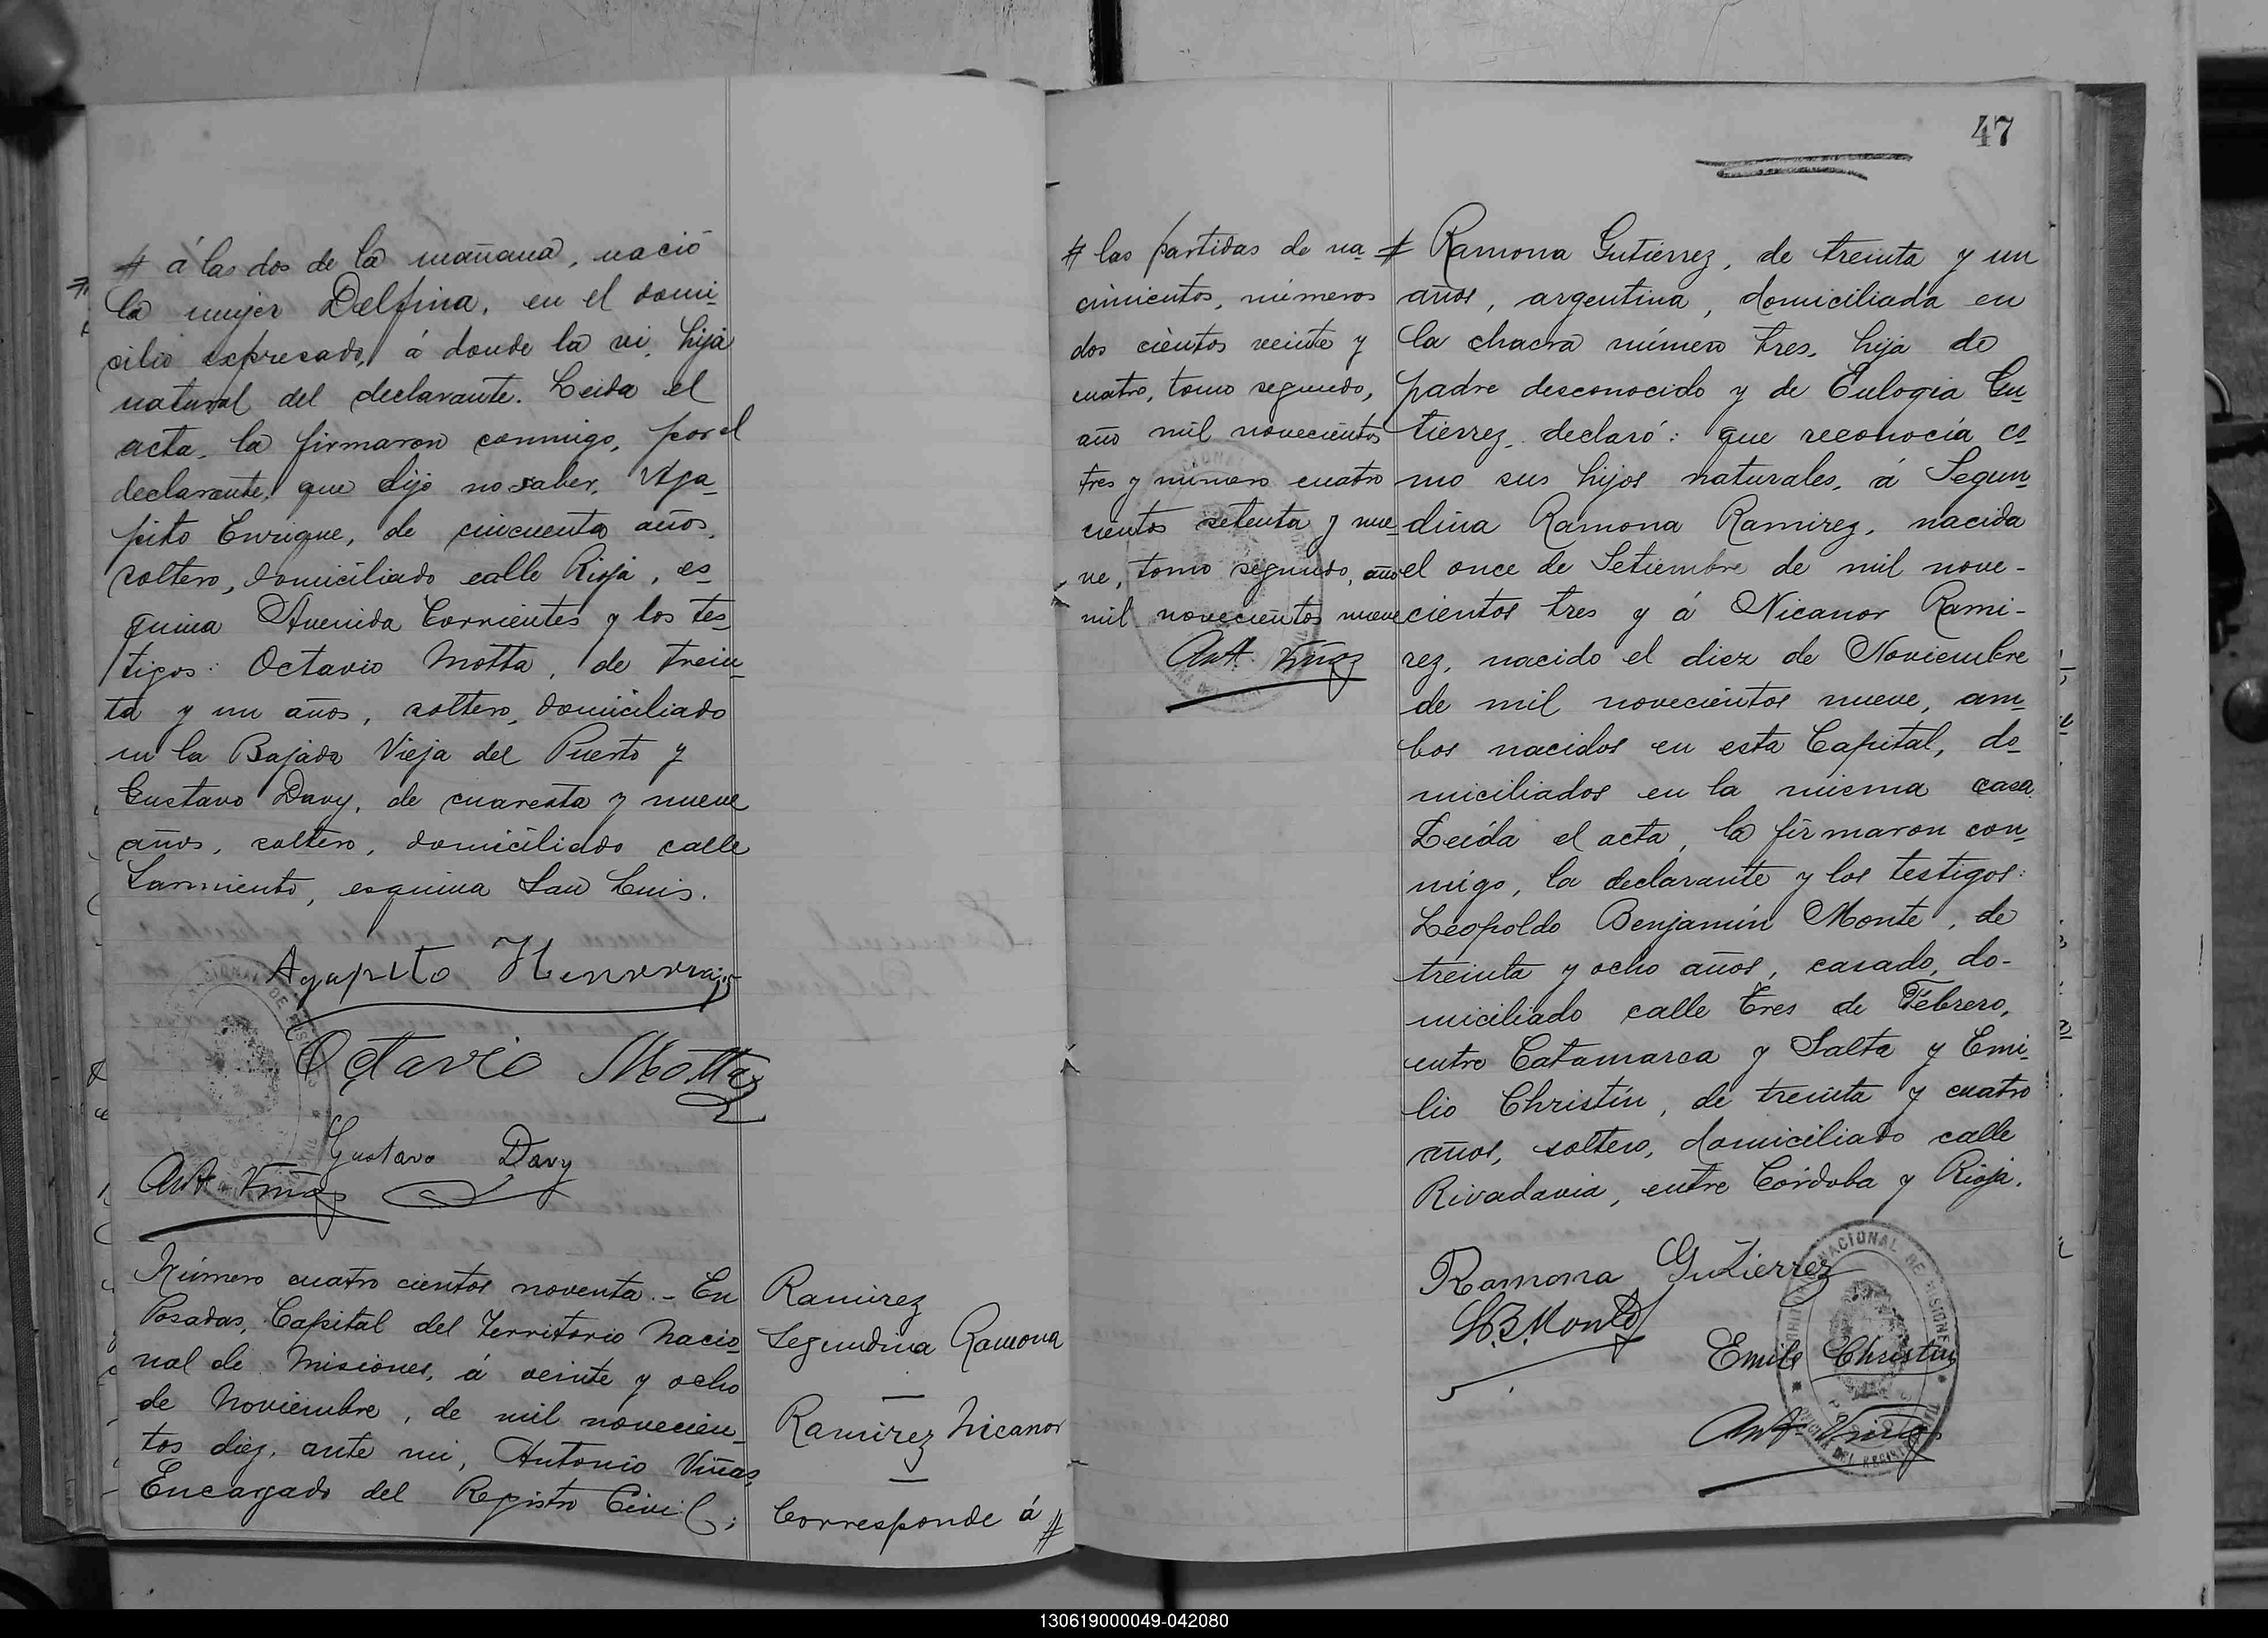 # á las dos de la mañana, nació
la mujer Delfina, en el domi-
cilio expresado, á donde la vi, hija
natural del declarante. Leida el
acta, la firmaron conmigo, por el
declarante, que dijo no saber, Aga-
pito Enrique, de cincuenta años,
soltero, domiciliado calle Rioja, es-
quina Avenida Corrientes y los tes-
tigos: Octavio Motta, de trein-
ta y un años, soltero, domiciliado
en la Bajada Vieja del Puerto y
Gustavo Davy, de cuarenta y nueve
años, soltero, domiciliado calle
Sarmiento, esquina San Luis.
Agapito
Octavio Motta
Gustavo Davy
Ant. Viñas
Número cuatro cientos noventa.- En
Posadas, Capital del Territorio Nacio-
nal de Misiones, á veinte y ocho
de Noviembre, de mil novecien-
tos diez, ante mi, Antonio Viñas,
Encargado del Registro Civil;
Ramirez
Segundina Ramona
Ramirez Nicanor
Corresponde á #
47
# las partidas de na-
cimientos, números
dos cientos veinte y
cuatro, tomo segundo,
año mil novecientos
tres y número cuatro
cientos setenta y nue-
ve, tomo segundo, año
mil novecientos nueve
Ant. Viñas
# Ramona Gutierrez, de treinta y un
años, argentina, domiciliada en
la chacra número tres, hija de
padre desconocido y de Eulogia Gu-
tierrez, declaró: que reconocía co-
mo sus hijos naturales, á Segun-
dina Ramona Ramirez, nacida
el once de Setiembre de mil nove-
cientos tres y á Nicanor Rami-
rez, nacido el diez de Noviembre
de mil novecientos nueve, am-
bos nacidos en esta Capital, do-
miciliados en la misma casa.
Leída el acta, la firmaron con-
migo, la declarante y los testigos:
Leopoldo Benjamín Monte, de
treinta y ocho años, casado, do-
miciliado calle Tres de Febrero,
entre Catamarca y Salta y Emi-
lio Christín, de treinta y cuatro
años, soltero, domiciliado calle
Rivadavia, entre Córdoba y Rioja.
Ramona Gutierrez
L.B. Monte
Emile Christin
Ant. Viñas
130619000049-042080